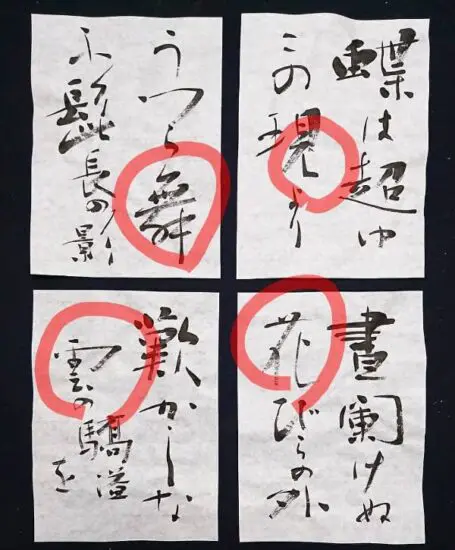 蝶は超ゆ
この現より
うつら舞
不髭長の影
晝闌けぬ
花びらの外
歎かしな
雲の驕溢を